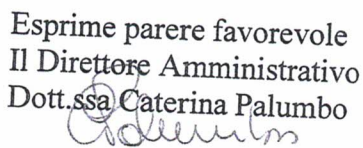 Esprime parere favorevole
Il Direttore Amministrativo
Dott.ssa Caterina Palumbo